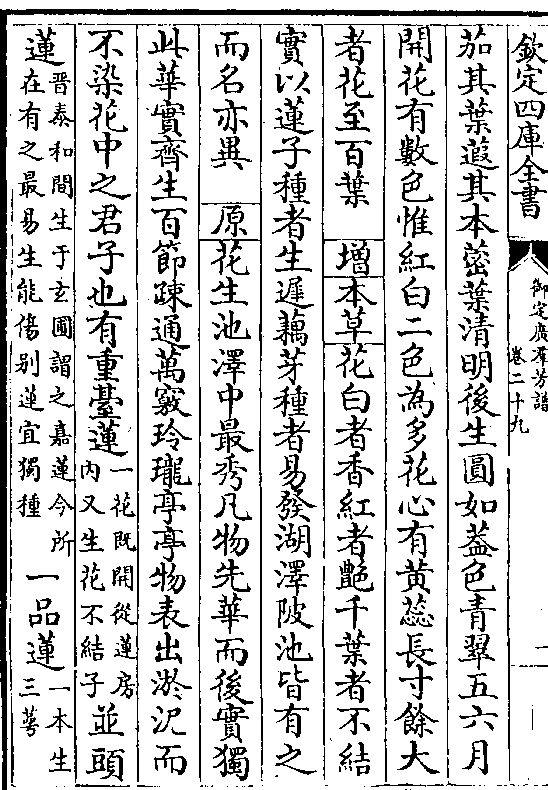 欽定四庫全書
御定廣羣芳譜
卷二十九
一
茄其葉蕸其本蔤葉清明後生圓如葢色青翠五六月
開花有數色惟紅白二色為多花心有黄蕊長寸餘大
者花至百葉 增本草花白者香紅者艶千葉者不結
實以蓮子種者生遲藕芽種者易發湖澤陂池皆有之
而名亦異 原花生池澤中最秀凡物先華而後實獨
此華實齊生百節疎通萬竅玲瓏亭亭物表出淤泥而
不染花中之君子也有重臺蓮一花既開從蓮房内又生花不結子並頭
蓮晋泰和間生于玄圃謂之嘉蓮今所在有之最易生能傷别蓮宜獨種 一品蓮一本生三萼